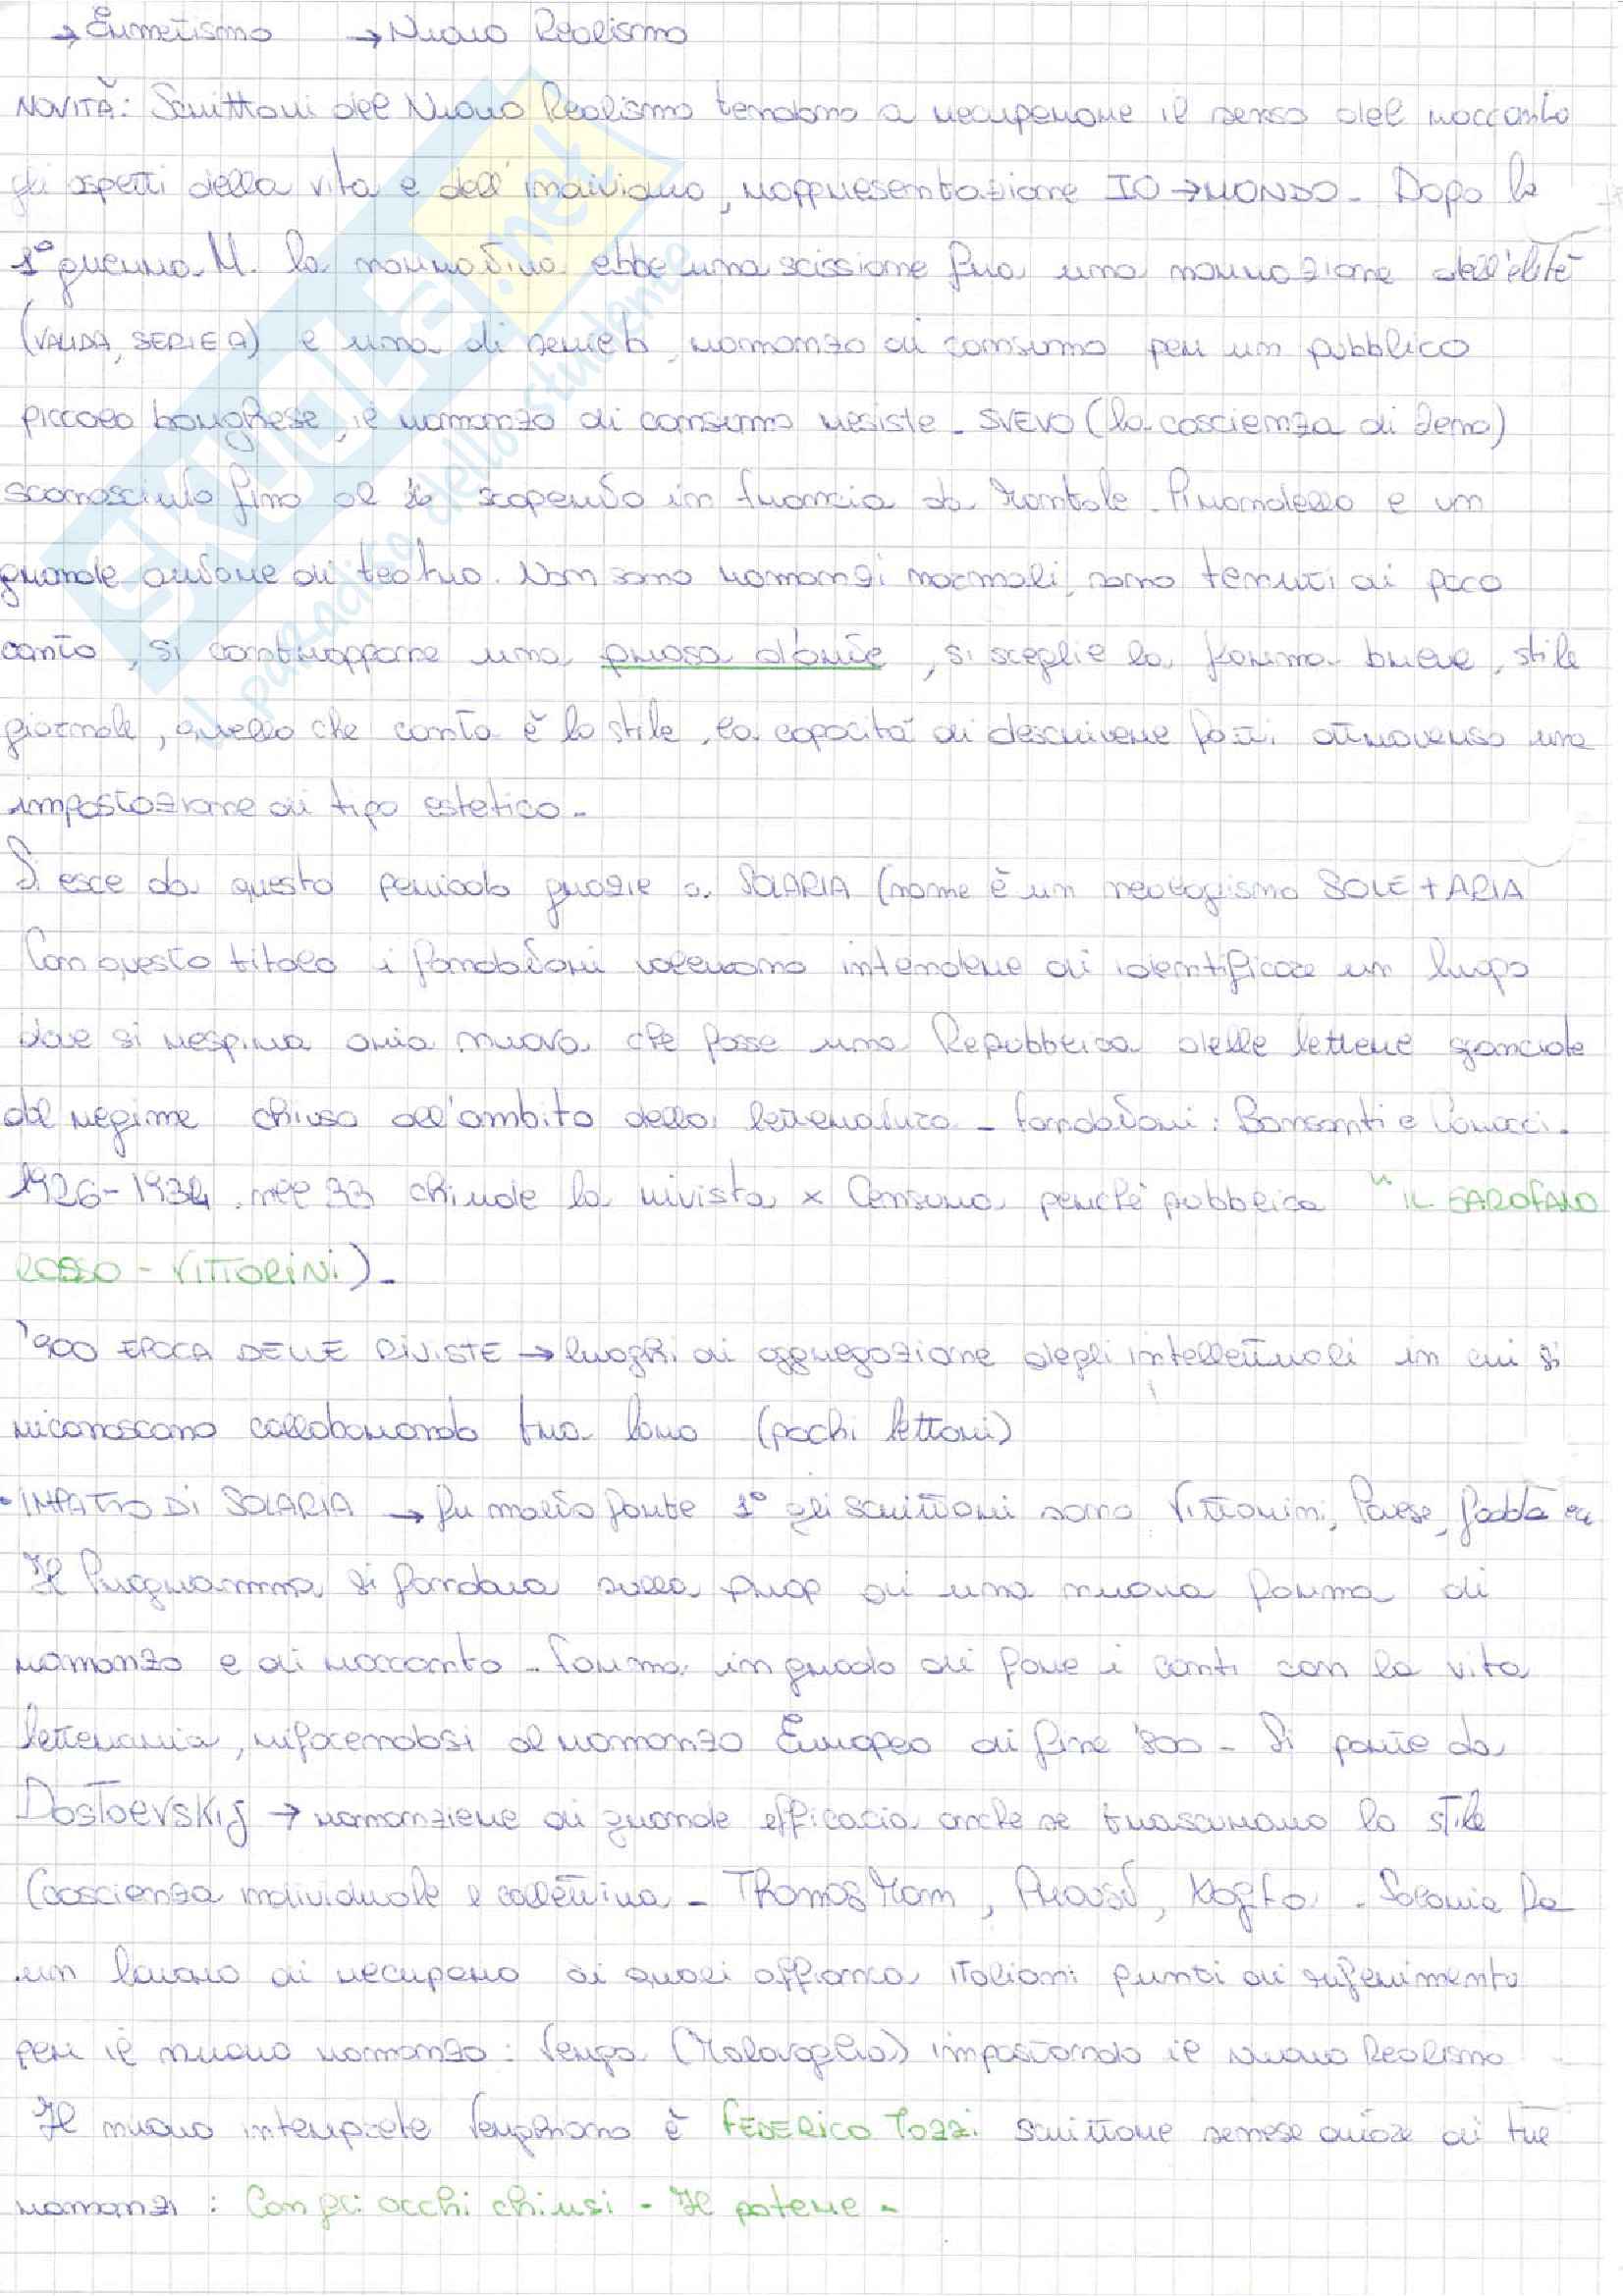 → Ermetismo → Nuovo Realismo
NOVITÀ: Scrittori del Nuovo Realismo tendono a recuperare il senso del racconto
gli aspetti della vita e dell'individuo, rappresentazione IO → MONDO - Dopo la
1° guerra M. la narrativa ebbe una scissione fra una narrazione dell'elitè
(VALIDA, SERIE A) e una di serie b, romanzo di consumo per un pubblico
piccolo borghese, il romanzo di consumo resiste - SVEVO (la coscienza di Zeno)
sconosciuto fino al scoperto in Francia da Montale. Pirandello e un
grande autore di teatro. Non sono romanzi normali, sono tenuti di poco
conto, si contrappone una prosa d'arte, si sceglie la forma breve, stile
giornale, quello che conta è lo stile, la capacità di descrivere fatti attraverso una
impostazione di tipo estetico -
Si esce da questo periodo grazie a SOLARIA (nome è un neologismo SOLE + ARIA
Con questo titolo i fondatori volevano intendere di identificare un luogo
dove si respira aria nuova che fosse una Repubblica delle lettere sganciate
dal regime chiuso all'ambito della letteratura - fondatori: Bonsanti e Carocci.
1926-1934. nel 33 chiude la rivista x Censura perchè pubblica "IL GAROFANO
ROSSO - VITTORINI) -
'900 EPOCA DELLE RIVISTE → luoghi di aggregazione degli intellettuali in cui si
riconoscono collaborando tra loro (pochi lettori)
• IMPATTO DI SOLARIA → fu molto forte 1° gli scrittori sono Vittorini, Pavese, Gadda
Il Programma si fondava sulla prop di una nuova forma di
romanzo e di racconto - forma in grado di fare i conti con la vita
letteraria, rifacendosi al romanzo Europeo di fine '800 - Si parte da
Dostoevskij → romanziere di grande efficacia anche se trascurano lo stile
(coscienza individuale e collettiva - Thomas Mann, Proust, Kafka. Solaria fa
un lavoro di recupero ai quali affianca italiani punti di riferimento
per il nuovo romanzo: Verga (Malavoglia) impostando il nuovo Realismo
Il nuovo interprete Verghiano è FEDERICO Tozzi scrittore senese autore di tre
romanzi: Con gli occhi chiusi - Il potere -
SKUOLA.net
il paradiso dello studente